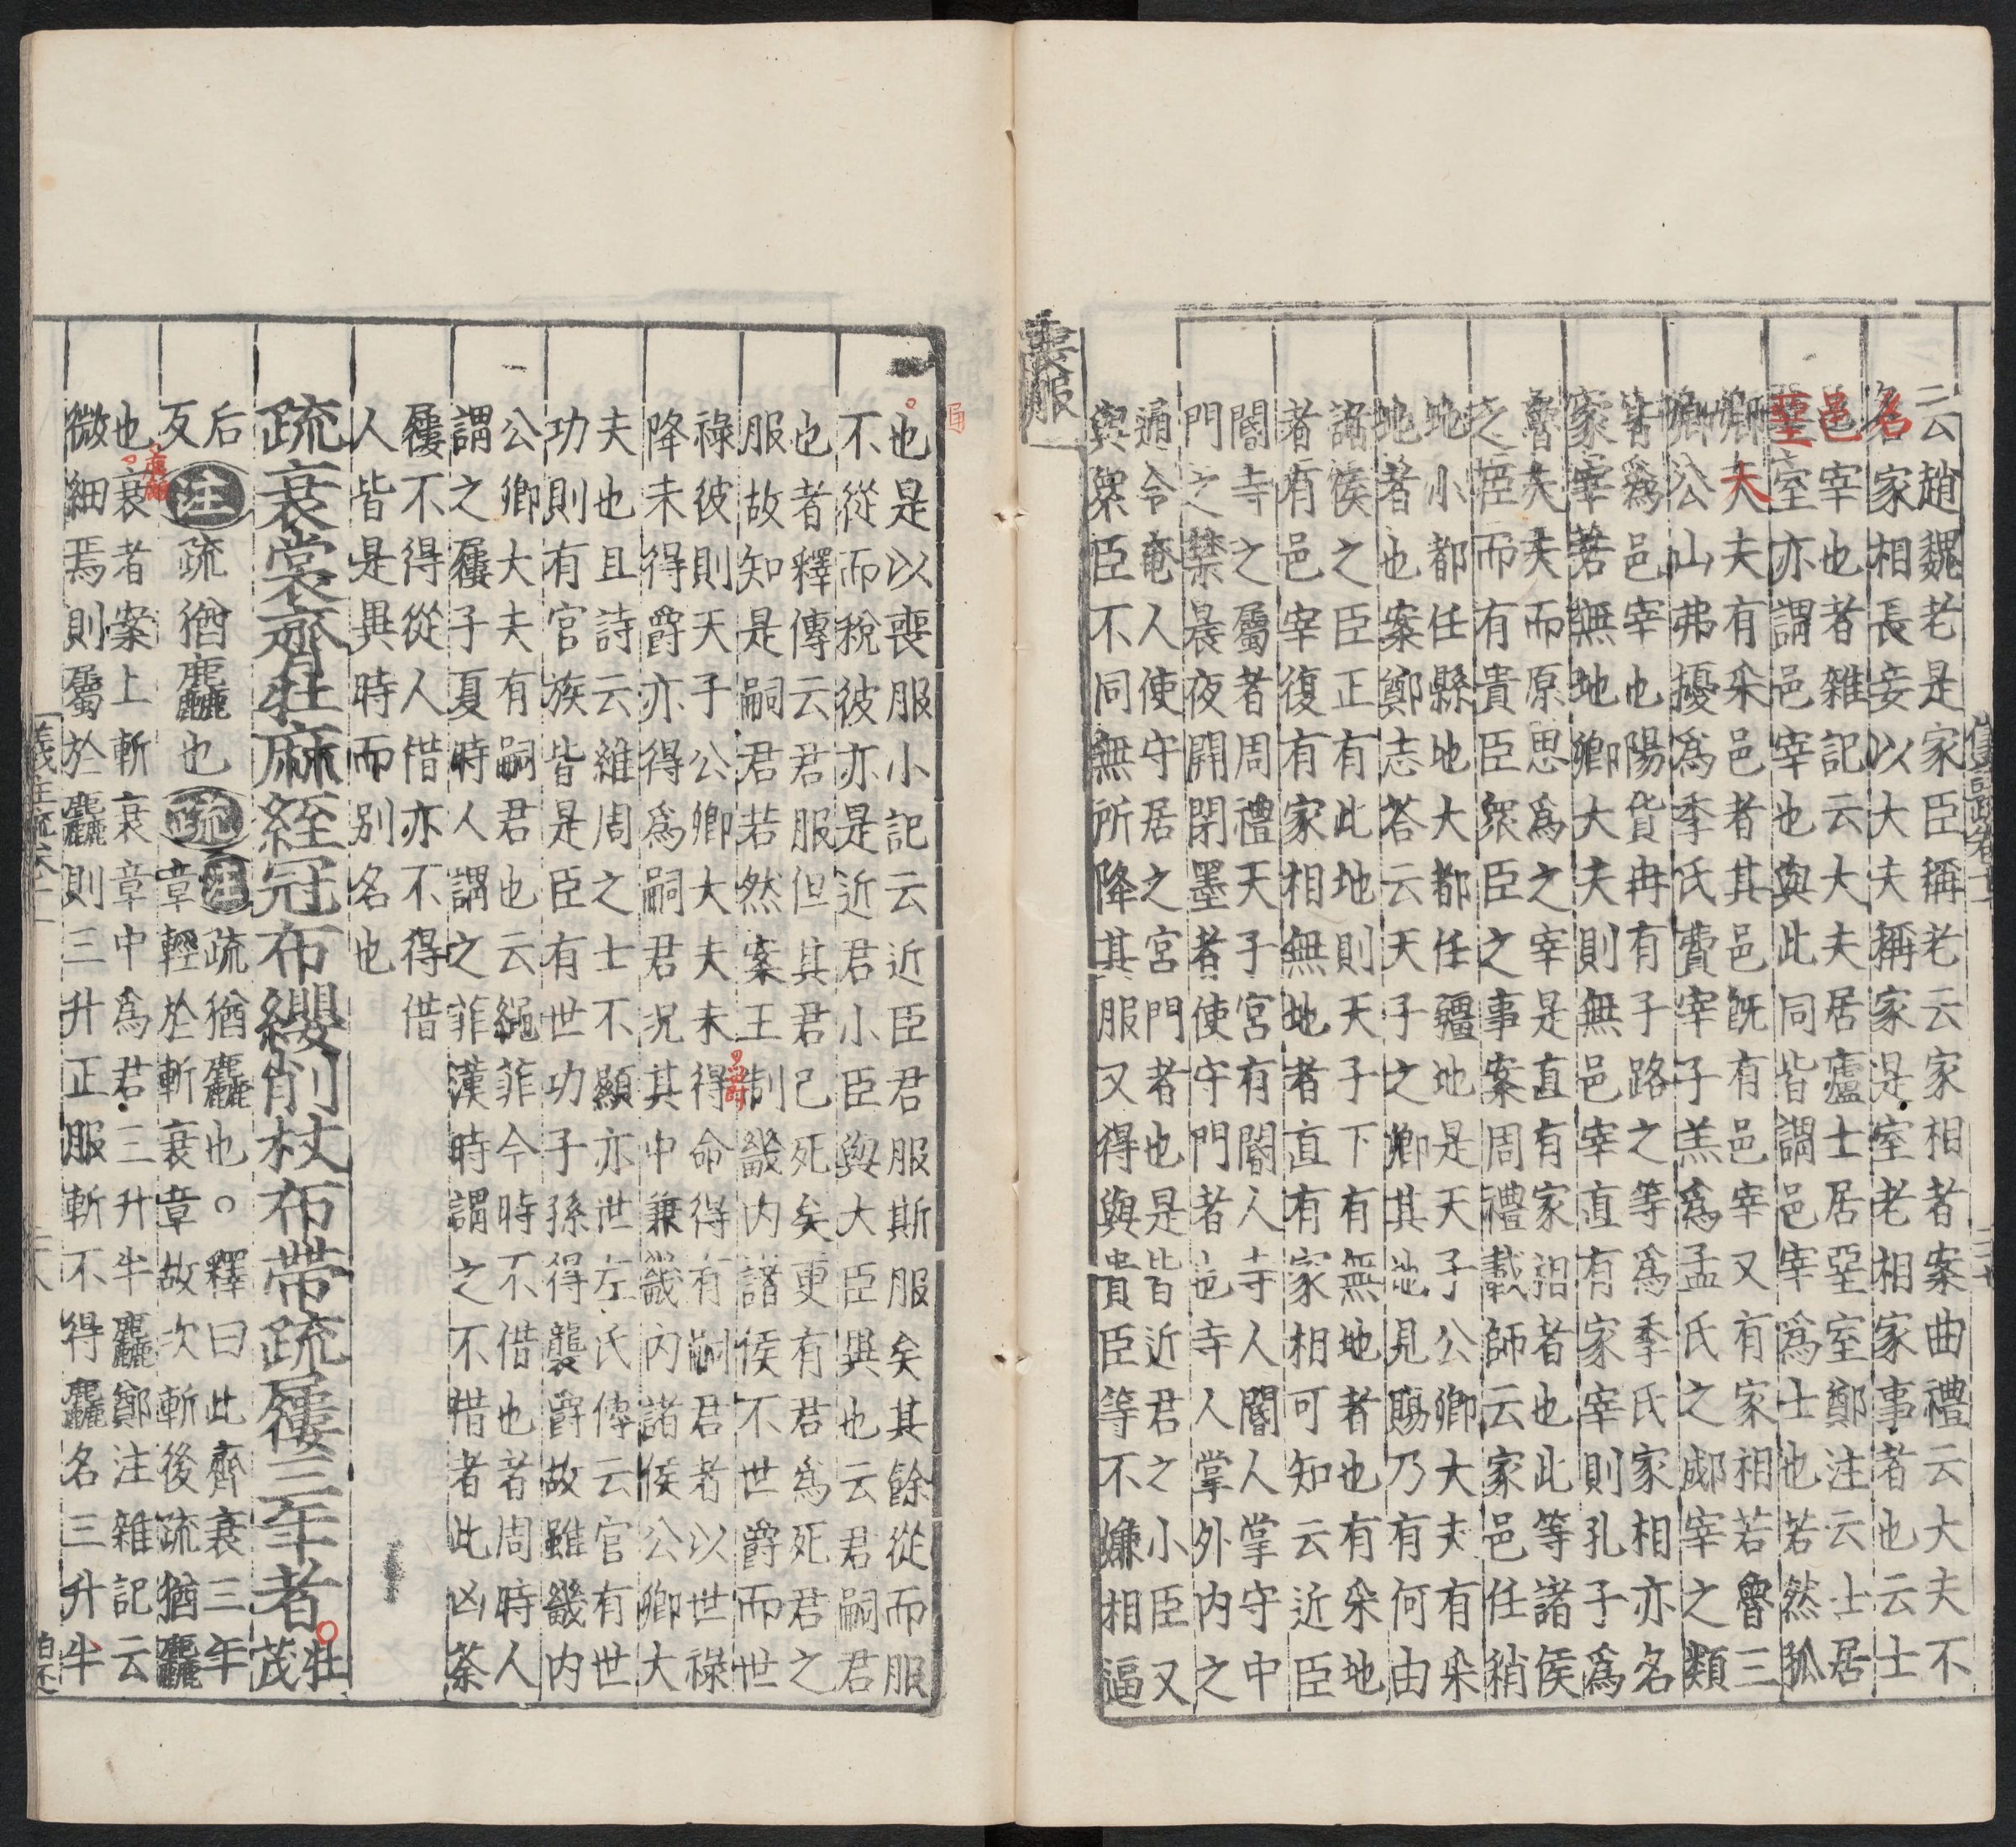 云趙魏老是家臣稱老云家相者案曲禮云大夫不
名家相長妾以大夫稱家是室老相家事者也云士
邑宰也者雜記云大夫居廬士居堊室鄭注云士居
堊室亦謂邑宰也與此同皆謂邑宰爲士也若然孤
卿夫夫有采邑者其邑旣有邑宰又有家相若魯三
卿公山弗擾爲季氏費宰子羔爲孟氏之郕宰之類
皆爲邑宰也陽貨冉有子路之等爲季氏家相亦名
家宰若無地卿大夫則無邑宰直有家宰則孔子爲
魯大夫而原思爲之宰是直有家相者也此等諸侯
之臣而有貴臣衆臣之事案周禮載師云家邑任稍
地小都任縣地大都任疆地是天子公卿大夫有采
地者也案鄭志荅云天子之卿其地見賜乃有何由
諸侯之臣正有此地則天子下有無地者也有采地
者有邑宰復有家相無地者直有家相可知云近臣
閽寺之屬者周禮天子宮有閽人寺人閽人掌守中
門之禁晨夜開閉墨者使守門者也寺人掌外内之
通令奄人使守居之宮門者也是皆近君之小臣又
與衆臣不同無所降其服又得與貴臣等不嫌相逼
喪服
也是以喪服小記云近臣君服斯服矣其餘從而服
不從而稅彼亦是近君小臣與大臣異也云君嗣君
也者釋傳云君服但其君已死矣更有君爲死君之
服故知是嗣君若然案王制畿内諸侯不世爵而世
祿彼則天子公卿大夫未得命得有嗣君者以世祿
降未得爵亦得爲嗣君况其中兼畿内諸侯公卿大
夫也且詩云維周之士不顯亦世左氏傳云官有世
功則有官族皆是臣有世功子孫得襲爵故雖畿内
公卿大夫有嗣君也云繩菲今時不借也者周時人
謂之屨子夏時人謂之菲漢時謂之不惜者此凶荼
屨不得從人惜亦不得借
人皆是異時而別名也
疏衰裳齊牡麻絰冠布纓削杖布帶疏屨三年者
牡
茂
后
反注疏猶麤也疏注疏猶麤也○釋曰此齊衰三年
章輕於斬衰章故次斬後疏猶麤
也衰者案上斬衰章中爲君三升半麤鄭注雜記云
微細焉則屬於麤則三升正服斬不得麤名三升半